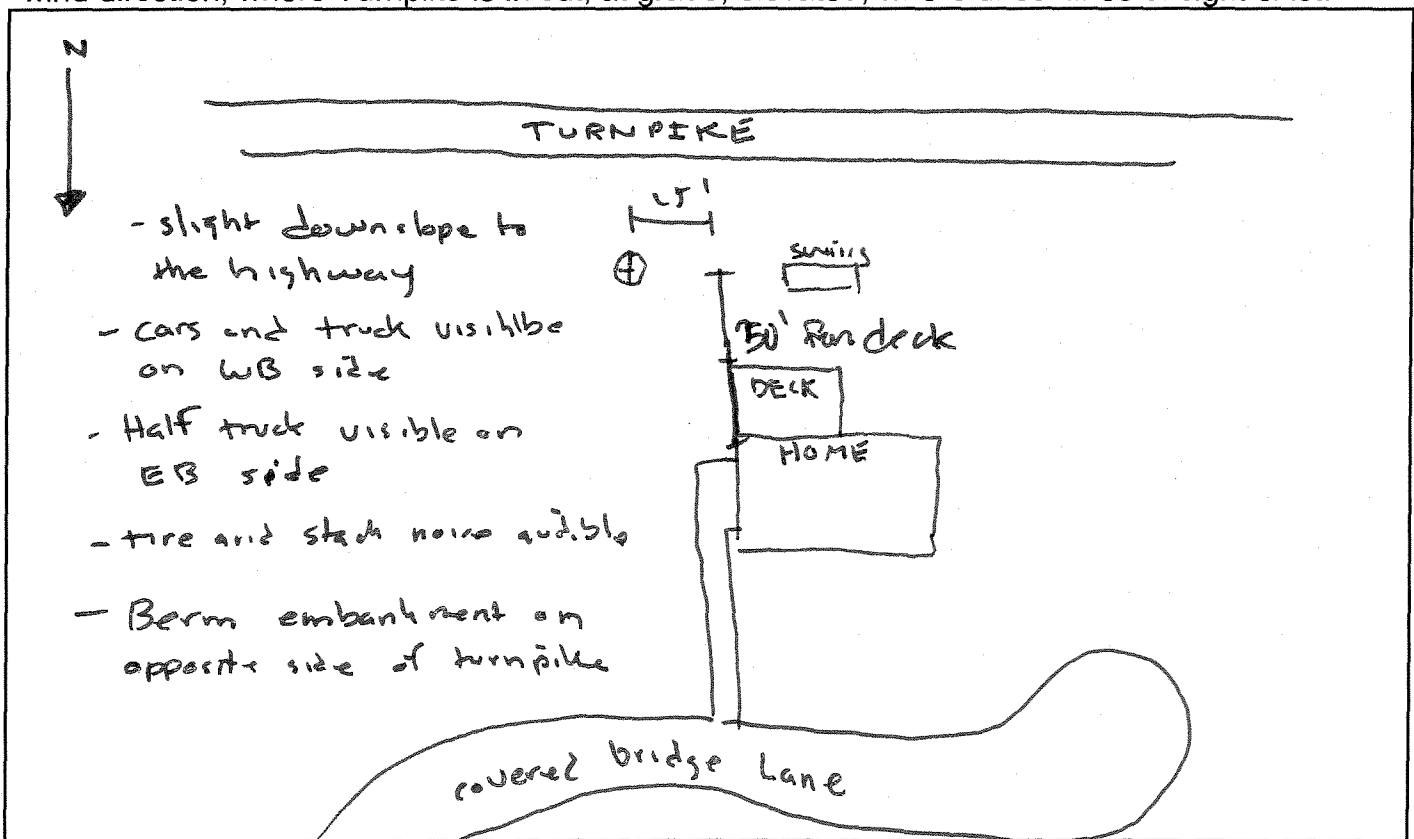 N
TURNPIKE
- slight downslope to
the highway
- cars and truck visihlbe
on WB side
- Half truck visible on
EB side
- tire and stack noise audible
- Berm embankment on
opposite side of turnpike
swing
50' from deck
DECK
HOME
covered bridge Lane